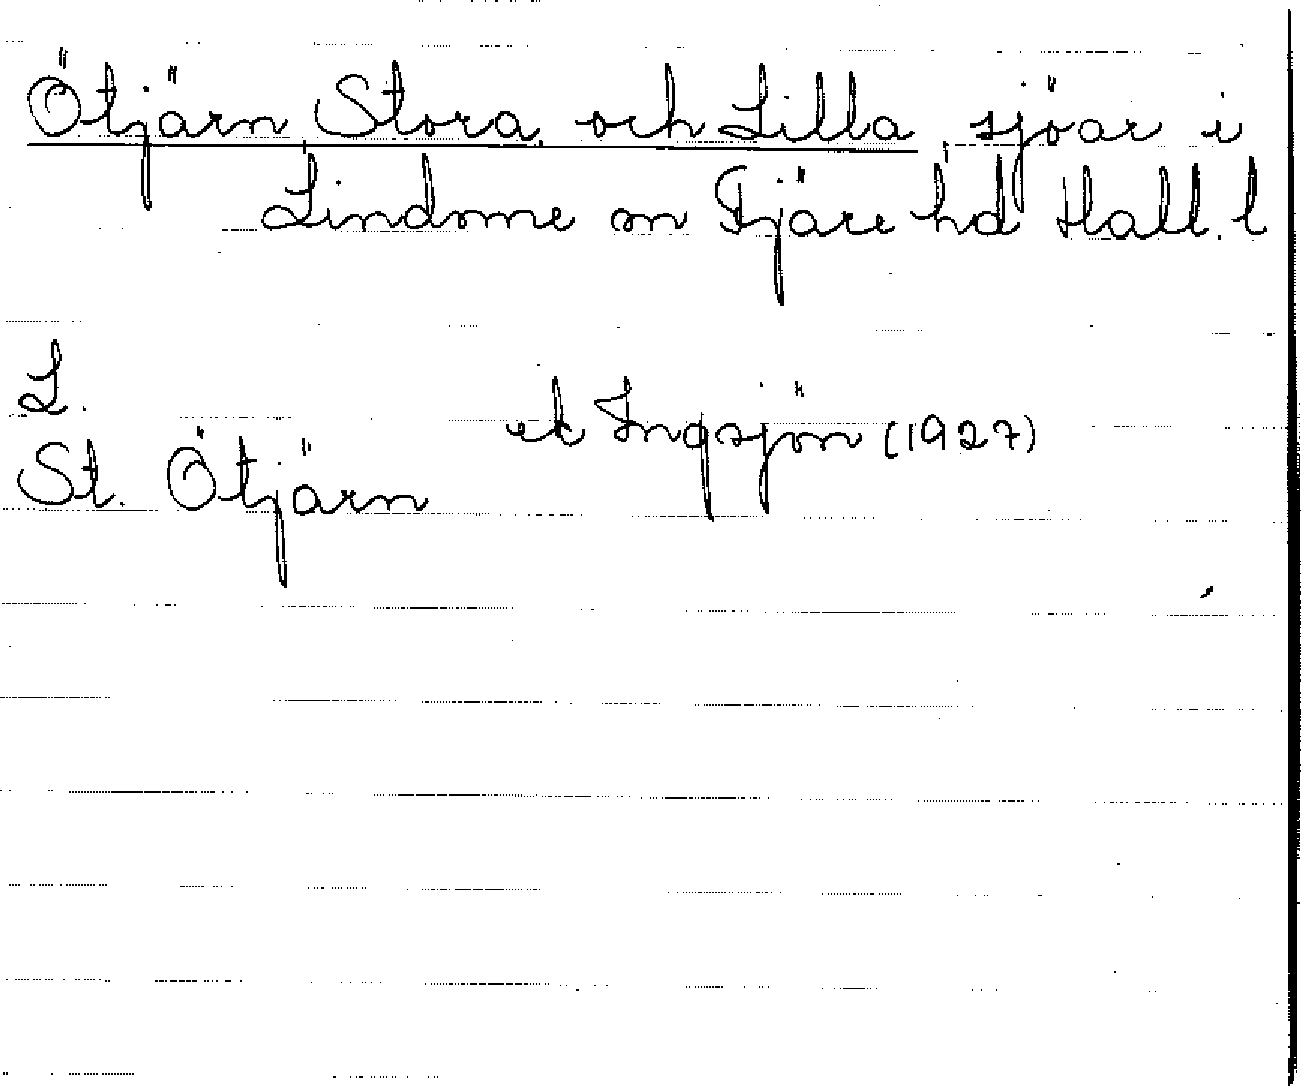 Ötjärn, Stora och Lilla, sjöar i
Lindome sn Fjäre hd Hall. l
L.
St. Ötjärn
ek Ingsjön (1927)